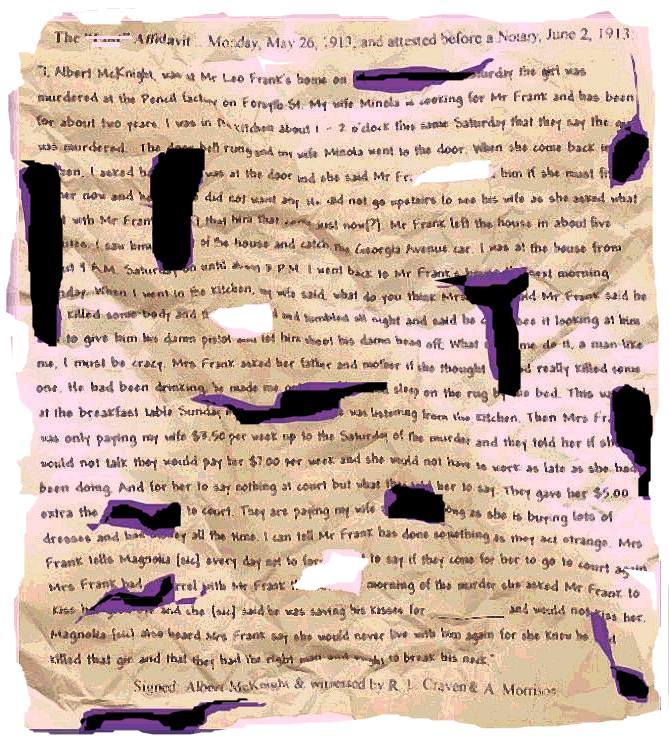 The Affidavit . Monday, May 26, 1913, and attested before a Notary, June 2, 1913:
"I, Albert McKnight, was at Mr Leo Frank's home on the girl was
murdered at the Pencil factory on Forsyth St. My wife Minola is cooking for Mr Frank and has been
for about two years. I was in kitchen about 1 - 2 o'clock this same Saturday that they say the
was murdered. The bell rung and my wife Minola went to the door. When she come back in
I asked was at the door and she said Mr him if she must
her now and did not want any. He did not go upstairs to see his wife as she asked what
with Mr that him that just now[?]. Mr Frank left the house in about five
I saw him of the house and catch the Georgia Avenue car. I was at the house from
9 A.M. until about 3 P.M. I went back to Mr Frank's next morning
When I went to the kitchen, my wife said, what do you think Mr Frank said he
killed some body and and tumbled all night and said he see it looking at him
to give him his damn pistol and let him shoot his damn head off. What me do it, a man like
me, I must be crazy. Mrs Frank asked her father and mother if she thought really killed some
one. He had been drinking, he made me sleep on the rug by the bed. This
at the breakfast table Sunday was listening from the kitchen. Then Mrs
was only paying my wife $3.50 per week up to the Saturday of the murder and they told her if
would not talk they would pay her $7.00 per week and she would not have to work as late as she had
been doing. And for her to say nothing at court but what her to say. They gave her $5.00
extra the to court. They are paying my wife long as she is buying lots of
dresses and all the time. I can tell Mr Frank has done something as they act strange. Mrs
Frank tells Magnolia [sic] every day not to to say if they come for her to go to court again
Mrs Frank had with Mr Frank morning of the murder she asked Mr Frank to
kiss and she [sic] said he was saving his kisses for ________ and would not kiss her.
Magnolia [sic] also heard Mrs Frank say she would never live with him again for she knew he
killed that girl and that they had the right man and ought to break his neck"
Signed: Albert McKnight & witnessed by R. L. Craven & A. Morrison